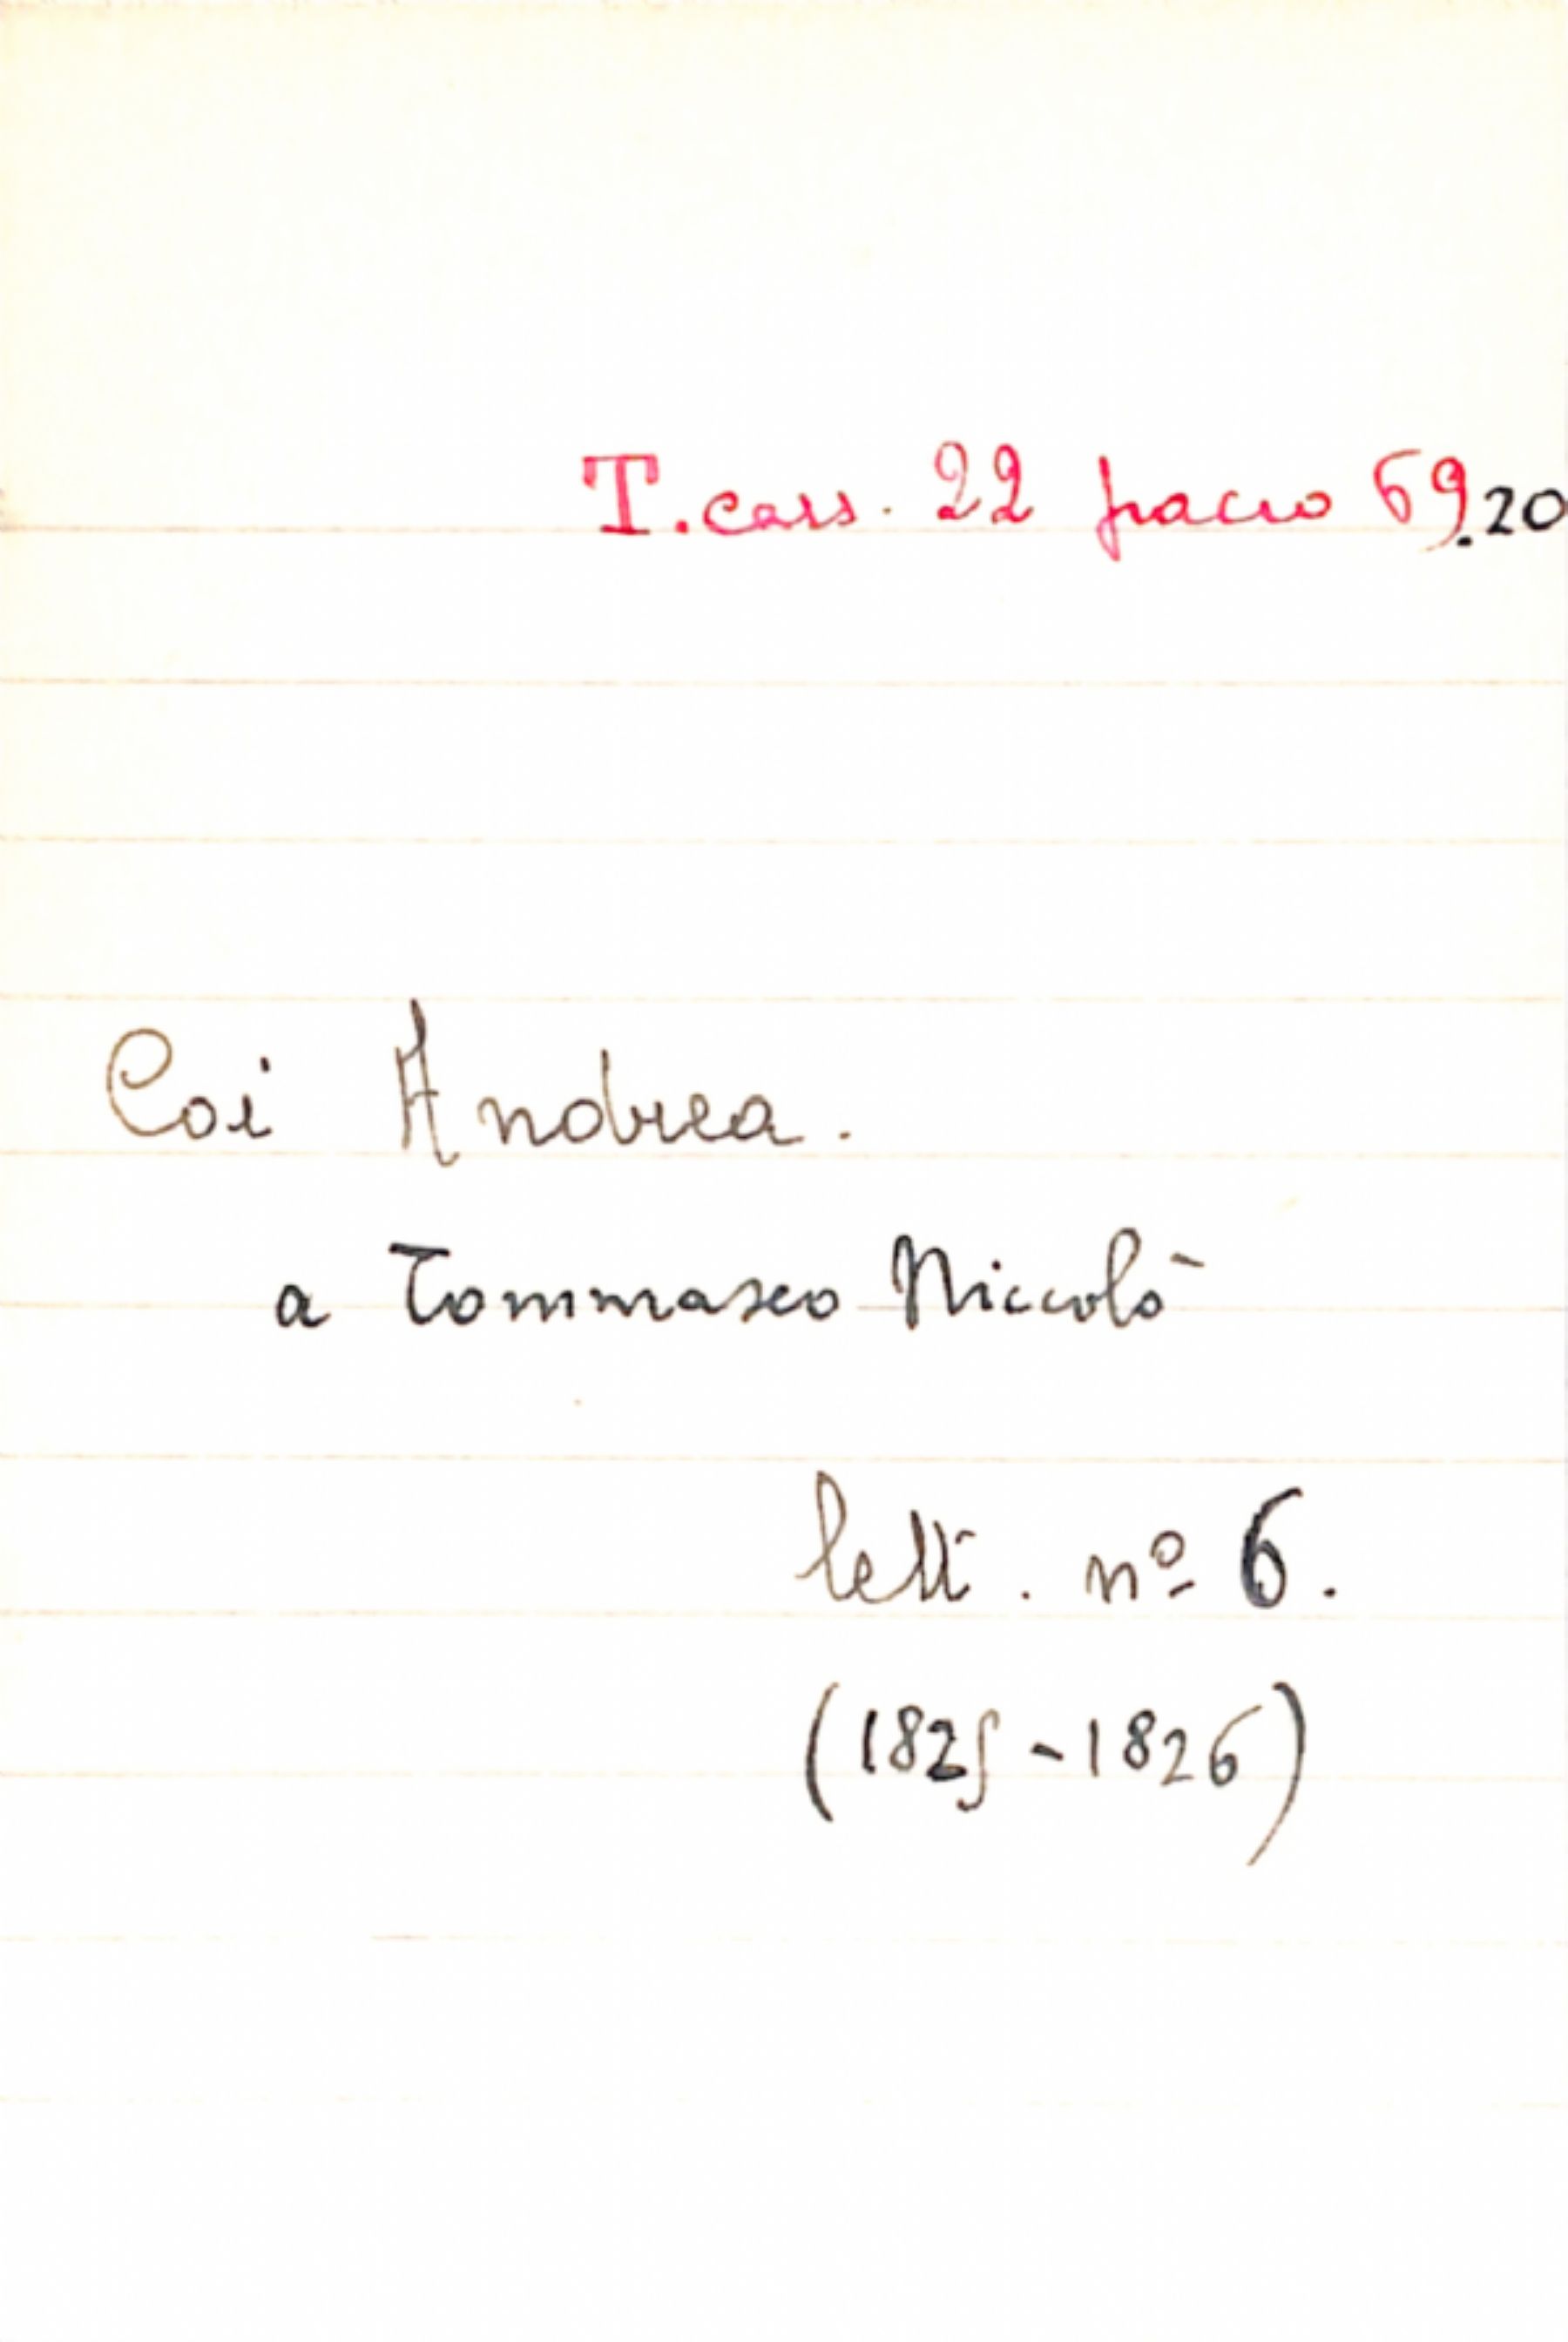 T. cass. 22 pacco 69.20
Coi Andrea.
a Tommaseo Niccolò
lett. nº 6.
(1825-1826)